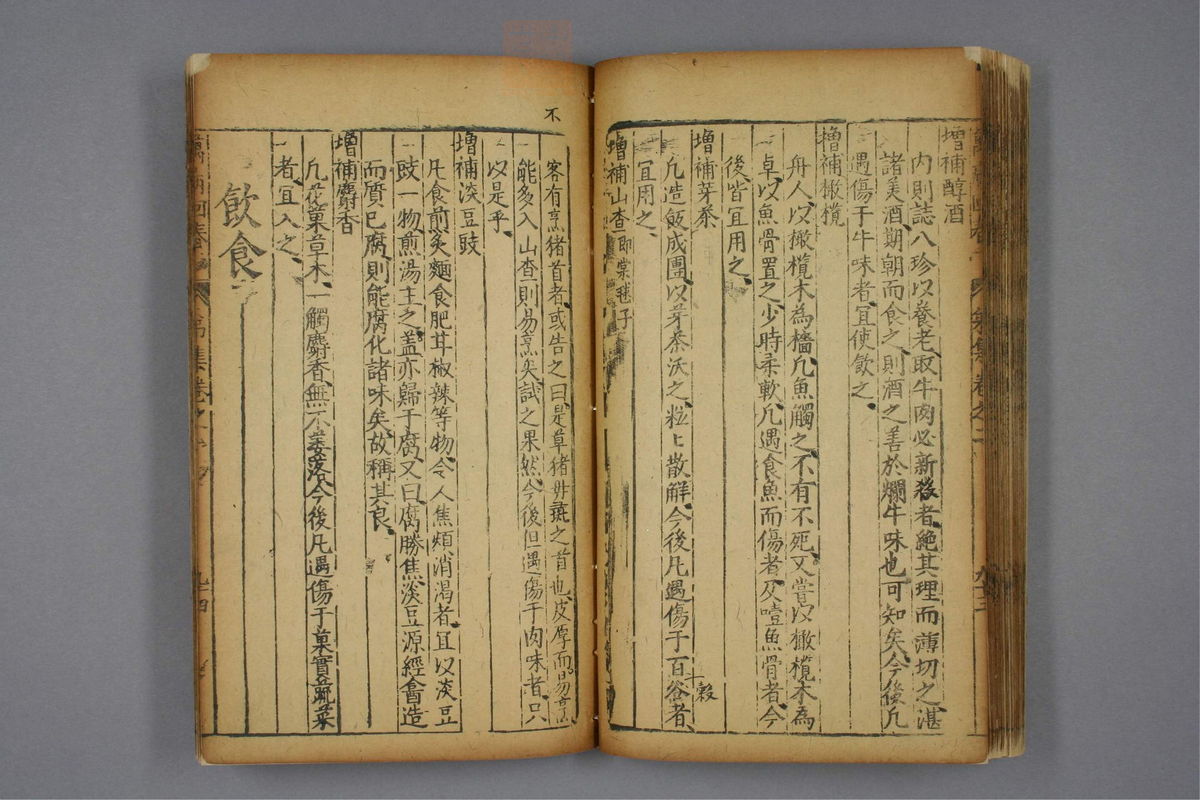 增補醇酒
內則誌八珍以養老取牛肉必新殺者絶其理而薄切之湛
諸美酒期朝而食之則酒之善於爛牛味也可知矣今後凡
遇傷于牛味者宜使飲之
增補橄欖
舟人以橄欖木為檣凡魚觸之不有不死又嘗以橄欖木為
卓以魚骨置之少時柔軟凡遇食魚而傷者及噎魚骨者今
後皆宜用之
增補芽茶
凡造飯成團以芽茶沃之粒上散解今後凡遇傷于百谷者
穀
宜用之
增補山查即棠毬子
不
客有烹猪首者或告之曰是草猪之首也皮厚而易烹
能多入山查則易烹矣試之果然今後但遇傷于肉味者只
以是乎
增補淡豆豉
凡食煎炙麵食肥茸椒辣等物令人焦煩消渴者宜以淡豆
豉一物煎湯主之蓋亦歸于腐又曰腐勝焦淡豆源經會造
而質已腐則能腐化諸味矣故稱其良
增補麝香
凡花菓草木一觸麝香無不萎落今後凡遇傷于菓實蔬菜
者宜入之
飲食
九十四